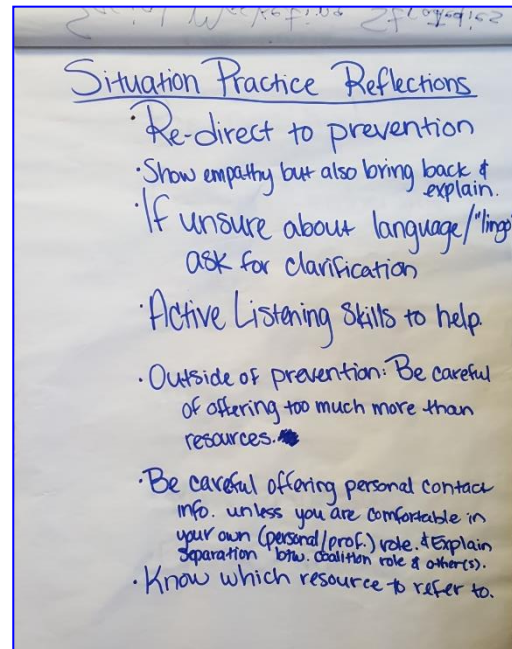 Situation Practice Reflections
· Re-direct to prevention
· Show empathy but also bring back &
explain.
· If unsure about language/"lingo"
ask for clarification
· Active Listening Skills to help.
· Outside of prevention: Be careful
of offering too much more than
resources.
· Be careful offering personal contact
info. unless you are comfortable in
your own (personal/prof.) role. & Explain
separation btw. coalition role & other(s).
· Know which resource to refer to.